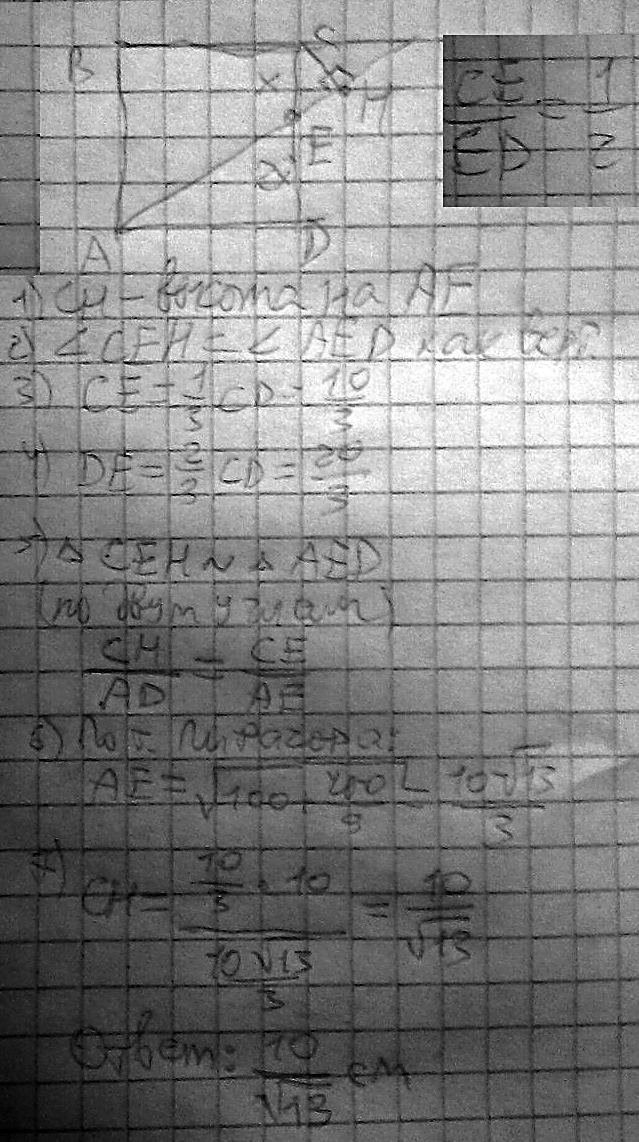 B C
x H
CE/ED = 1/2
E
2x
A D
1) CH – высота на AE
2) ∠CEH = ∠AED как верт.
3) CE = 1/3 CD = 10/3
4) DE = 2/3 CD = 20/3
5) △CEH ~ △AED
(по двум углам)
CH/AD = CE/AE
6) По т. Пифагора:
AE = √(100 + 400/9) = 10√13/3
7) CH = (10/3 · 10)/(10√13/3) = 10/√13
Ответ: 10/√13 см